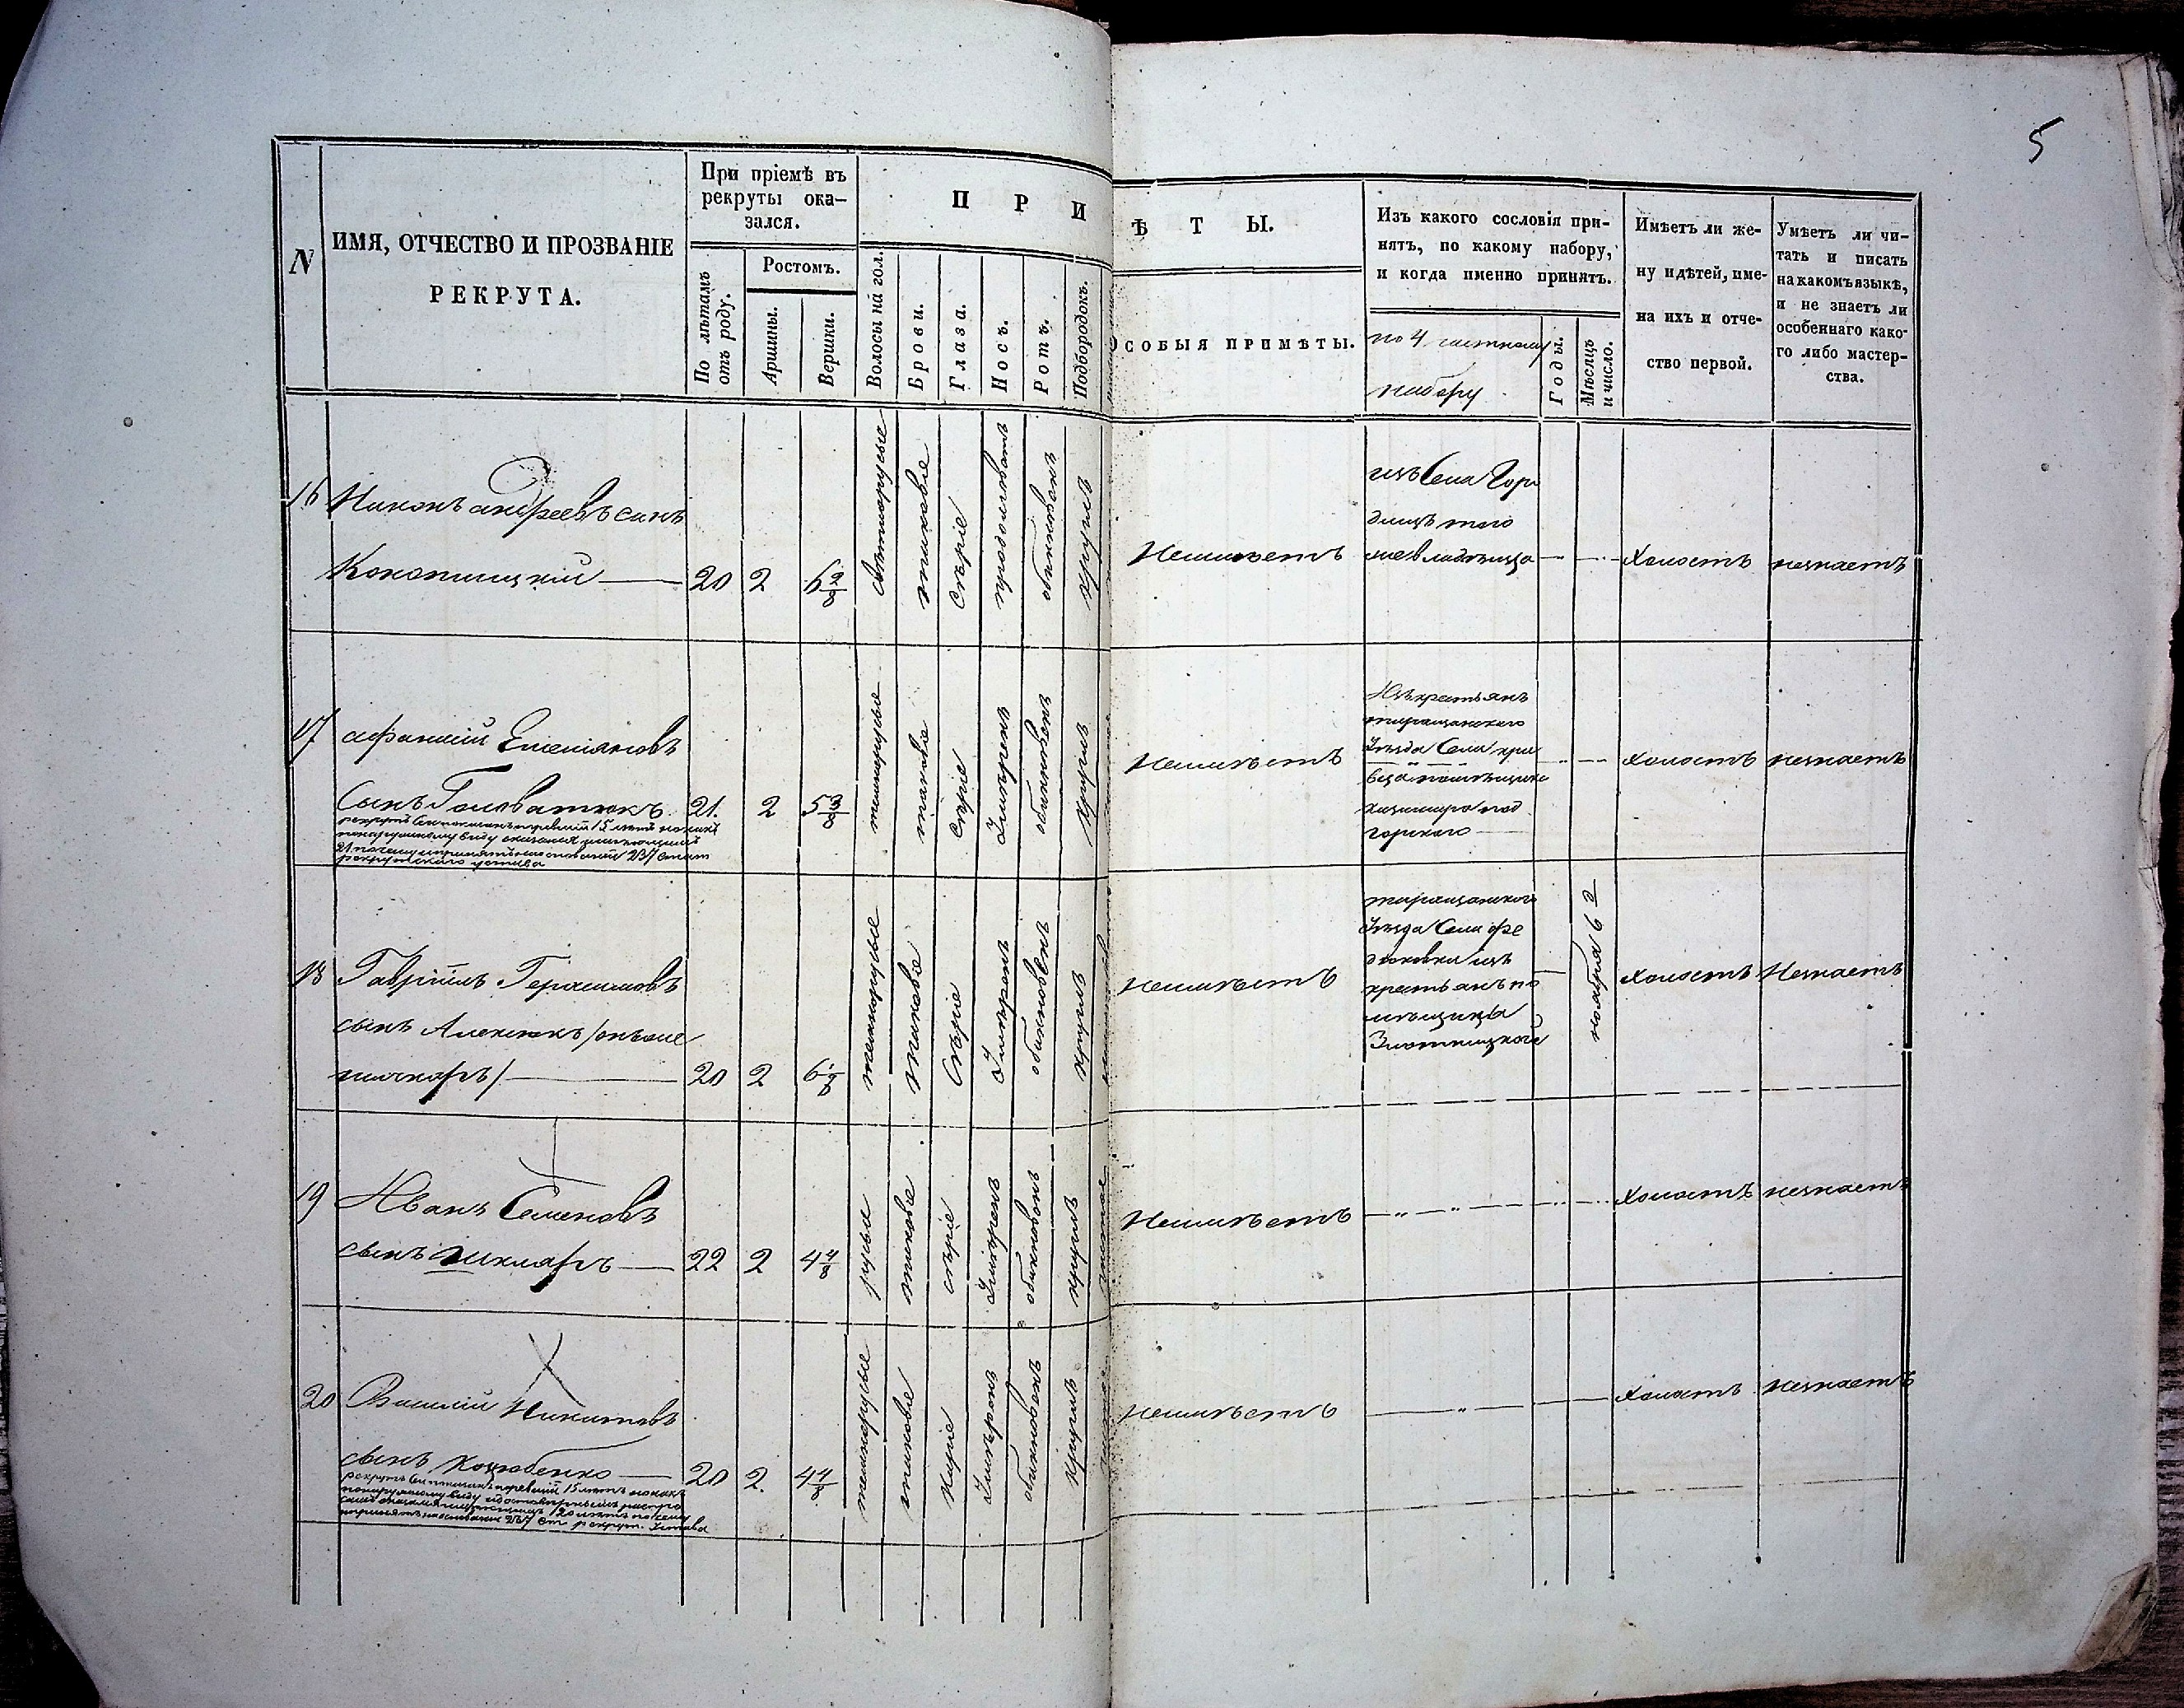 5
N
ИМЯ, ОТЧЕСТВО И ПРОЗВАНІЕ
РЕКРУТА.
При пріемѣ въ
рекруты ока-
зался.
По лѣтамъ
отъ роду.
Ростомъ.
Аршины.
Вершки.
П Р И
Волосы на гол.
Брови.
Глаза.
Носъ.
Ротъ.
Подбородокъ.
Ѣ Т Ы.
ОСОБЫЯ ПРИМѢТЫ.
Изъ какого сословія при-
нятъ, по какому набору,
и когда именно принятъ.
по 4 частному
набору
Годы.
Мѣсяцъ
и число.
Имѣетъ ли же-
ну и дѣтей, име-
на ихъ и отче-
ство первой.
Умѣетъ ли чи-
тать и писать
на какомъ языкѣ,
и не знаетъ ли
особеннаго како-
го либо мастер-
ства.
16 Никонъ андреевъ сынъ
20 2 6 2/8
свѣтлорусые
таковіе
сѣріе
продолговатъ
обикновенъ
круглъ
Неимѣетъ
изъ Села Горо
дищъ того
же владѣльца
холостъ
незнаетъ
17 афанасій Емельяновъ
Сынъ Головатюкъ 21. 2 5 3/8
21 почему и принятъ на основаніи 237 стат
рекрутскаго устава
темнорусые
таковіе
сѣріе
Умѣренъ
обикновенъ
круглъ
Неимѣетъ
Изъ крестьянъ
таращанского
Уезда Села кри
вца помѣщика
под
горского
холостъ
незнаетъ
18 Гавріилъ Герасимовъ
сынъ Алексюкъ /онъ же
20 2 6 1/8
темнорусые
таковіе
Сѣріе
Умѣренъ
обикновенъ
круглъ
Неимѣетъ
таращанского
Уезда Села Фе
дюковки изъ
крестьянъ по
мѣщика
Злотницкой
ноября 6
холостъ
Незнаетъ
19 Иванъ Семеновъ
сынъ шкляръ 22 2 4 4/8
русы
таковіе
сѣріе
Умѣренъ
обикновенъ
круглъ
Неимѣетъ
холостъ
незнаетъ
20 Василій Никитовъ
сынъ Коцюбенко 20 2. 4 4/8
темнорусые
таковіе
Каріе
Умѣренъ
обикновенъ
круглъ
неимѣетъ
холостъ
незнаетъ